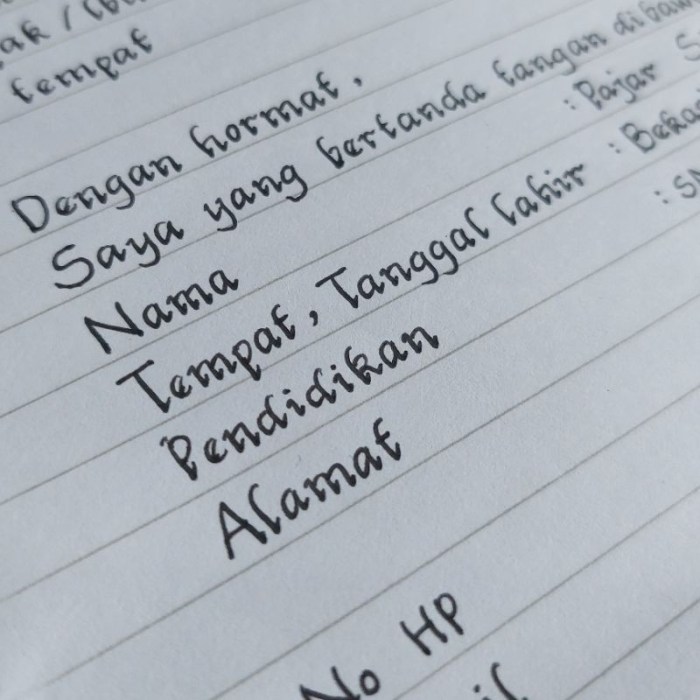 tempat
Dengan hormat,
Saya yang bertanda tangan
Nama : Pajar
Tempat, Tanggal lahir :
Pendidikan :
Alamat
No HP